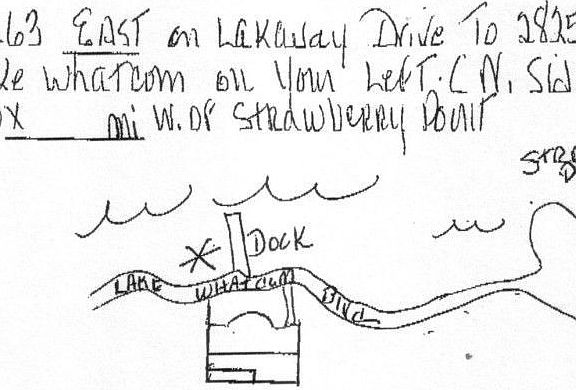 263 EAST on LAKAWAY Drive To 2825
ke WHATCOM on Your Left. (N. Sid
ox ____ mi W. OF STRAWBERRY Point
STRB
DOCK
LAKE WHATCOM Blvd